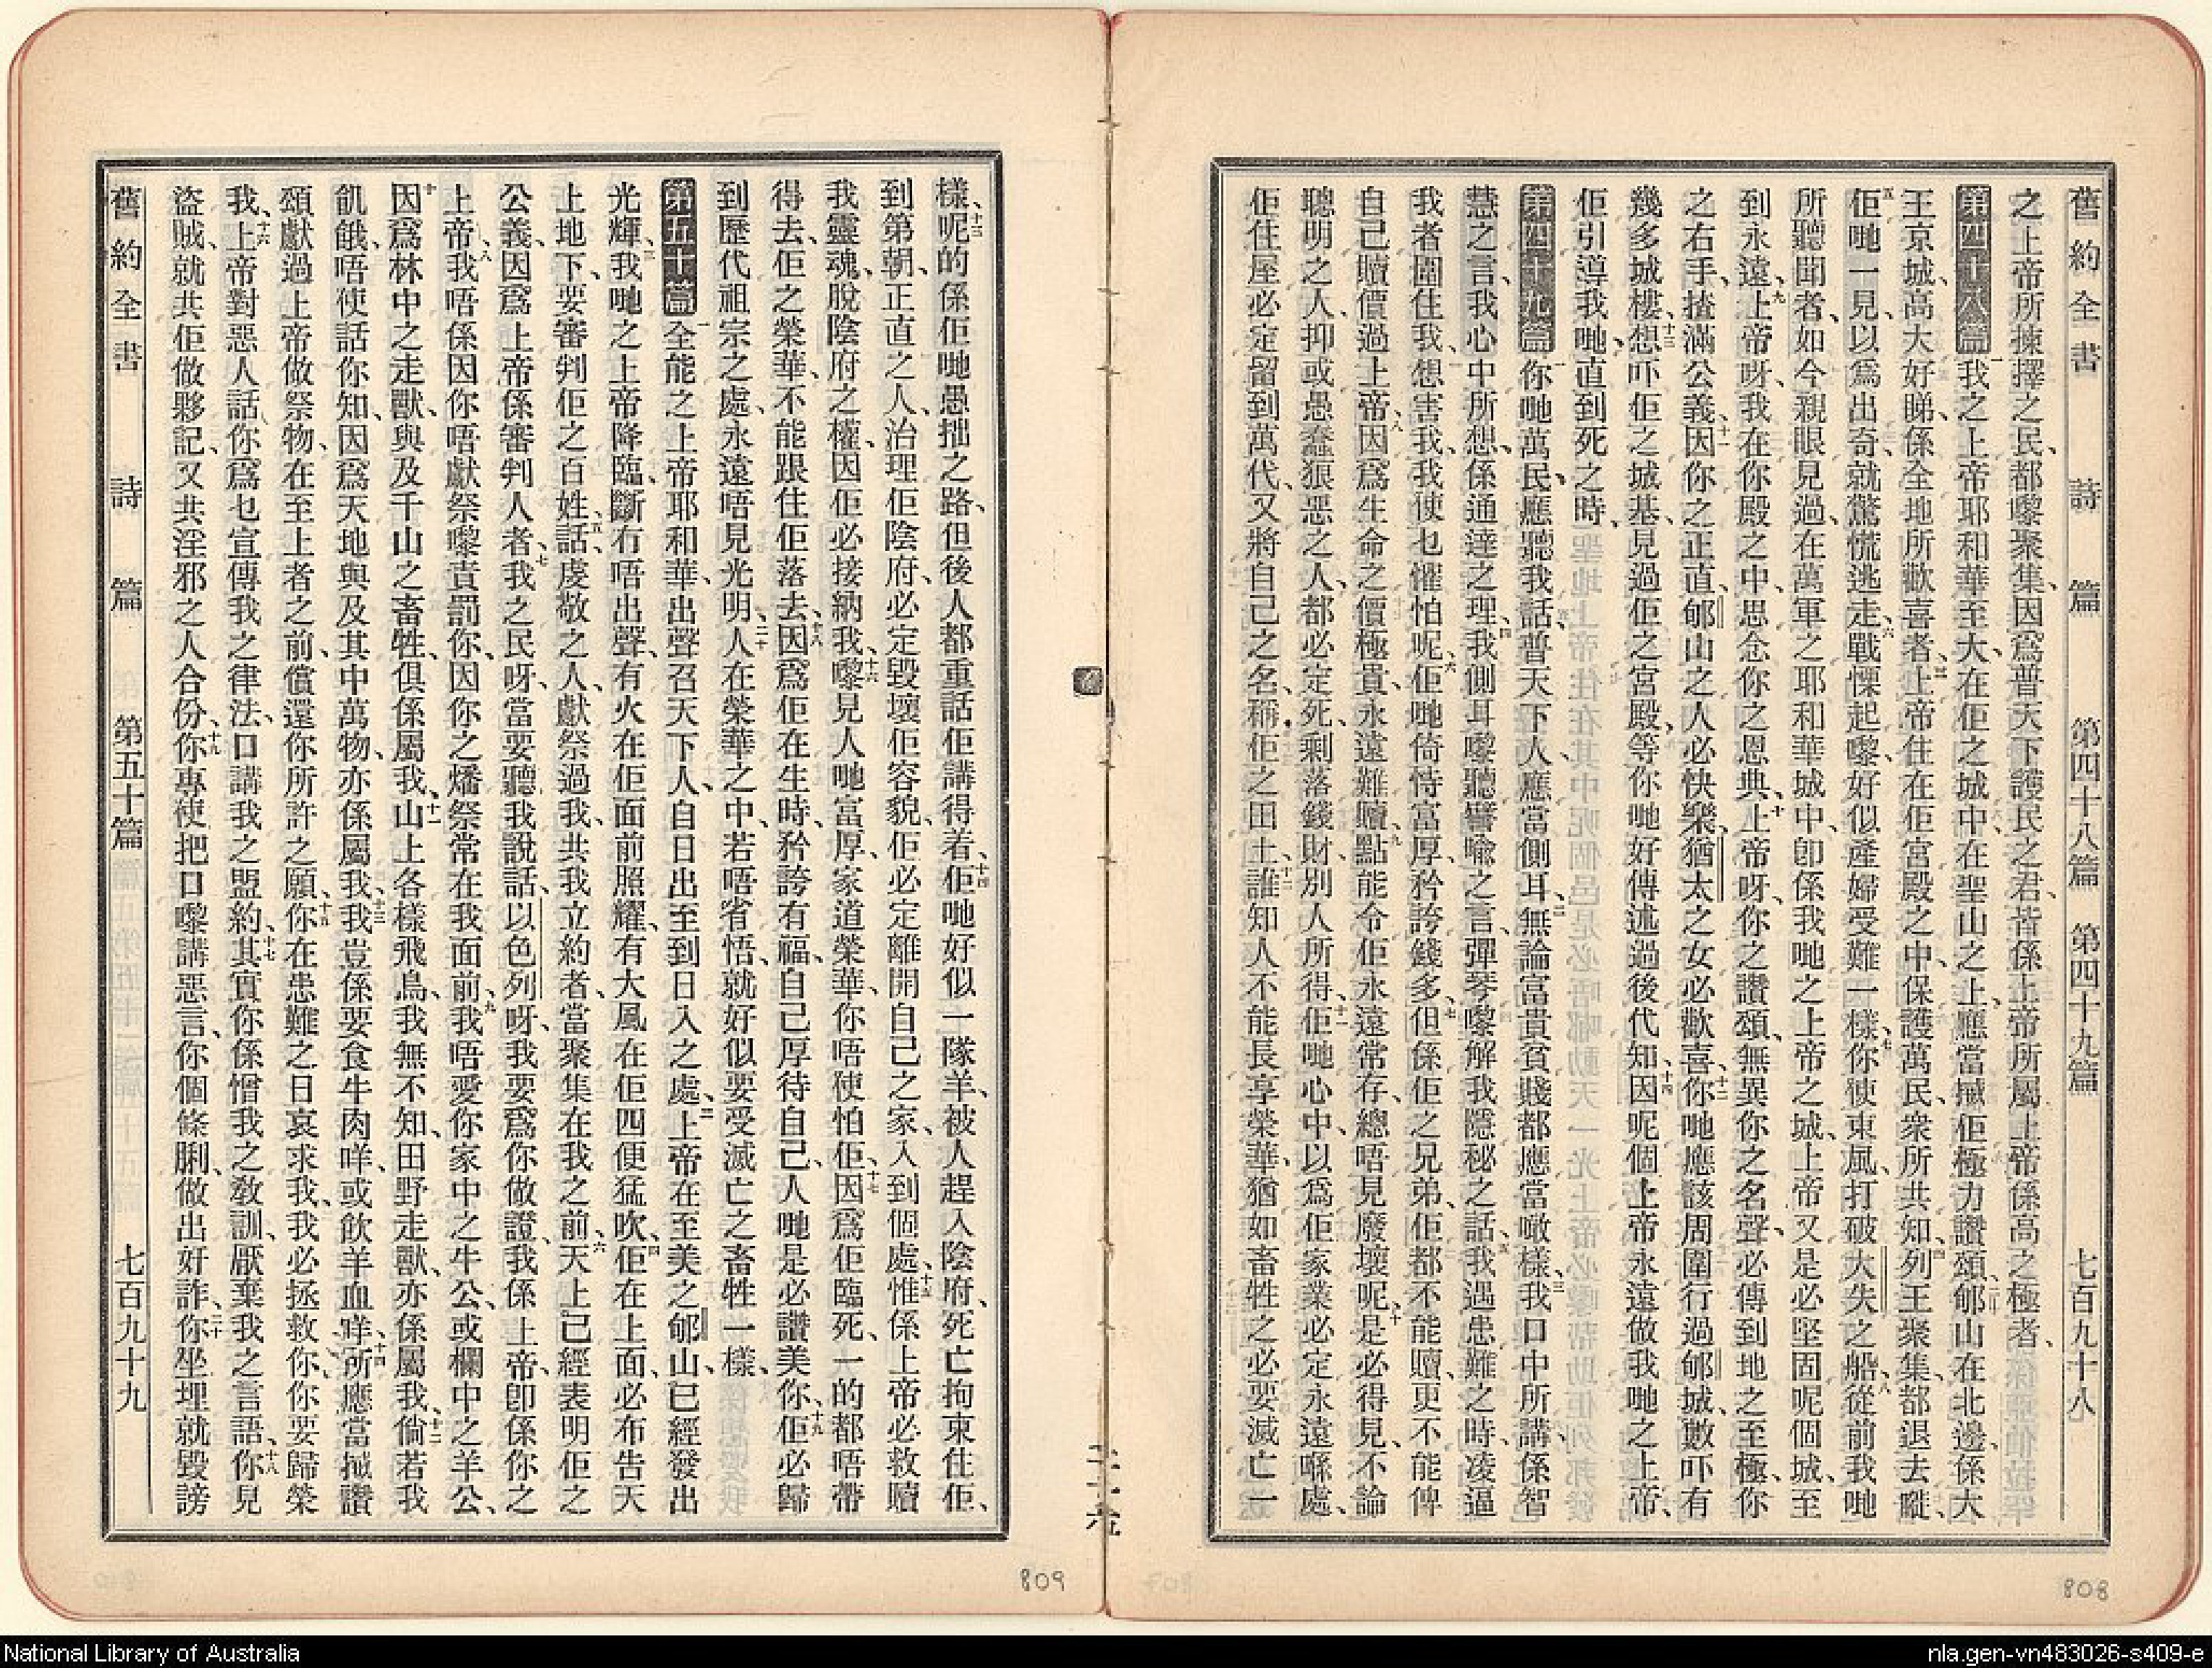 舊約全書 詩篇 第四十八篇 第四十九篇 七百九十八
之上帝所揀擇之民、都嚟聚集、因爲普天下護民之君、皆係上帝所屬、上帝係高之極者、
第四十八篇 一我之上帝耶和華至大、在佢之城中、在聖山之上、應當極力讚頌、二郇山在北邊、係大
王京城、高大好睇、係全地所歡喜者、三上帝住在佢宮殿之中、保護萬民、衆所共知、四列王聚集、都退去嘥、
五佢哋一見、以爲出奇、就驚慌逃走、六戰慄起嚟、好似產婦受難一樣、七你使東風、打破大失之船、八從前我哋
所聽聞者、如今親眼見過、在萬軍之耶和華城中、卽係我哋之上帝之城、上帝又是必堅固呢個城、至
到永遠、九上帝呀、我在你殿之中、思念你之恩典、十上帝呀、你之讚頌、無異你之名聲、必傳到地之至極、你
之右手、揸滿公義、十一因你之正直、郇山之人必快樂、猶太之女必歡喜、十二你哋應該周圍行過郇城、數吓有
幾多城樓、十三想吓佢之城基、見過佢之宮殿、等你哋好傳述過後代知、十四因呢個上帝、永遠做我哋之上帝、
佢引導我哋、直到死之時、
第四十九篇 一你哋萬民、應聽我話、普天下人、應當側耳、二無論富貴貧賤、都應當噉樣、三我口中所講、係智
慧之言、我心中所想、係通達之理、四我側耳嚟聽譬喻之言、彈琴嚟解我隱秘之話、五我遇患難之時、凌逼
我者圍住我、想害我、我使乜懼怕呢、六佢哋倚恃富厚、矜誇錢多、七但係佢之兄弟、佢都不能贖、更不能俾
自己贖價過上帝、八因爲生命之價極貴、永遠難贖、九點能令佢永遠常存、總唔見廢壞呢、十是必得見、不論
聰明之人、抑或愚蠢狠惡之人、都必定死、剩落錢財、別人所得、十一佢哋心中、以爲佢家業必定永遠喺處、
佢住屋必定留到萬代、又將自己之名、稱佢之田土、十二誰知人不能長享榮華、猶如畜牲之必要滅亡一
樣、十三呢的係佢哋愚拙之路、但後人都重話佢講得着、十四佢哋好似一隊羊、被人趕入陰府、死亡拘束住佢、
到第朝、正直之人、治理佢、陰府必定毀壞佢容貌、佢必定離開自己之家、入到個處、十五惟係上帝必救贖
我靈魂、脫陰府之權、因佢必接納我嚟、十六見人哋富厚、家道榮華、你唔使怕佢、十七因爲佢臨死、一的都唔帶
得去、佢之榮華、不能跟住佢落去、十八因爲佢在生時、矜誇有福、自己厚待自己、人哋是必讚美你、十九佢必歸
到歷代祖宗之處、永遠唔見光明、二十人在榮華之中、若唔省悟、就好似要受滅亡之畜牲一樣、
第五十篇 一全能之上帝耶和華、出聲召天下人、自日出至到日入之處、二上帝在至美之郇山、已經發出
光輝、三我哋之上帝降臨、斷冇唔出聲、有火在佢面前照耀、有大風在佢四便猛吹、四佢在上面、必布告天
上地下、要審判佢之百姓、五話、虔敬之人、獻祭過我、共我立約者、當聚集在我之前、六天上已經表明佢之
公義、因爲上帝係審判人者、七我之民呀、當要聽我說話、以色列呀、我要爲你做證、我係上帝、卽係你之
上帝、八我唔係因你唔獻祭嚟責罰你、因你之燔祭常在我面前、九我唔愛你家中之牛公、或欄中之羊公、
十因爲林中之走獸、與及千山之畜牲、俱係屬我、十一山上各樣飛鳥、我無不知、田野走獸、亦係屬我、十二倘若我
飢餓、唔使話你知、因爲天地與及其中萬物、亦係屬我、十三我豈係要食牛肉咩、或飲羊血咩、十四所應當極讚
頌獻過上帝做祭物、在至上者之前、償還你所許之願、十五你在患難之日哀求我、我必拯救你、你要歸榮
我、十六上帝對惡人話、你爲乜宣傳我之律法、口講我之盟約、十七其實你係憎我之教訓、厭棄我之言語、十八你見
盜賊、就共佢做夥記、又共淫邪之人合份、十九你專使把口嚟講惡言、你個條脷、做出奸詐、二十你坐埋就毀謗
舊約全書 詩篇 第五十篇 七百九十九
809
808
National Library of Australia
nla.gen-vn483026-s409-e